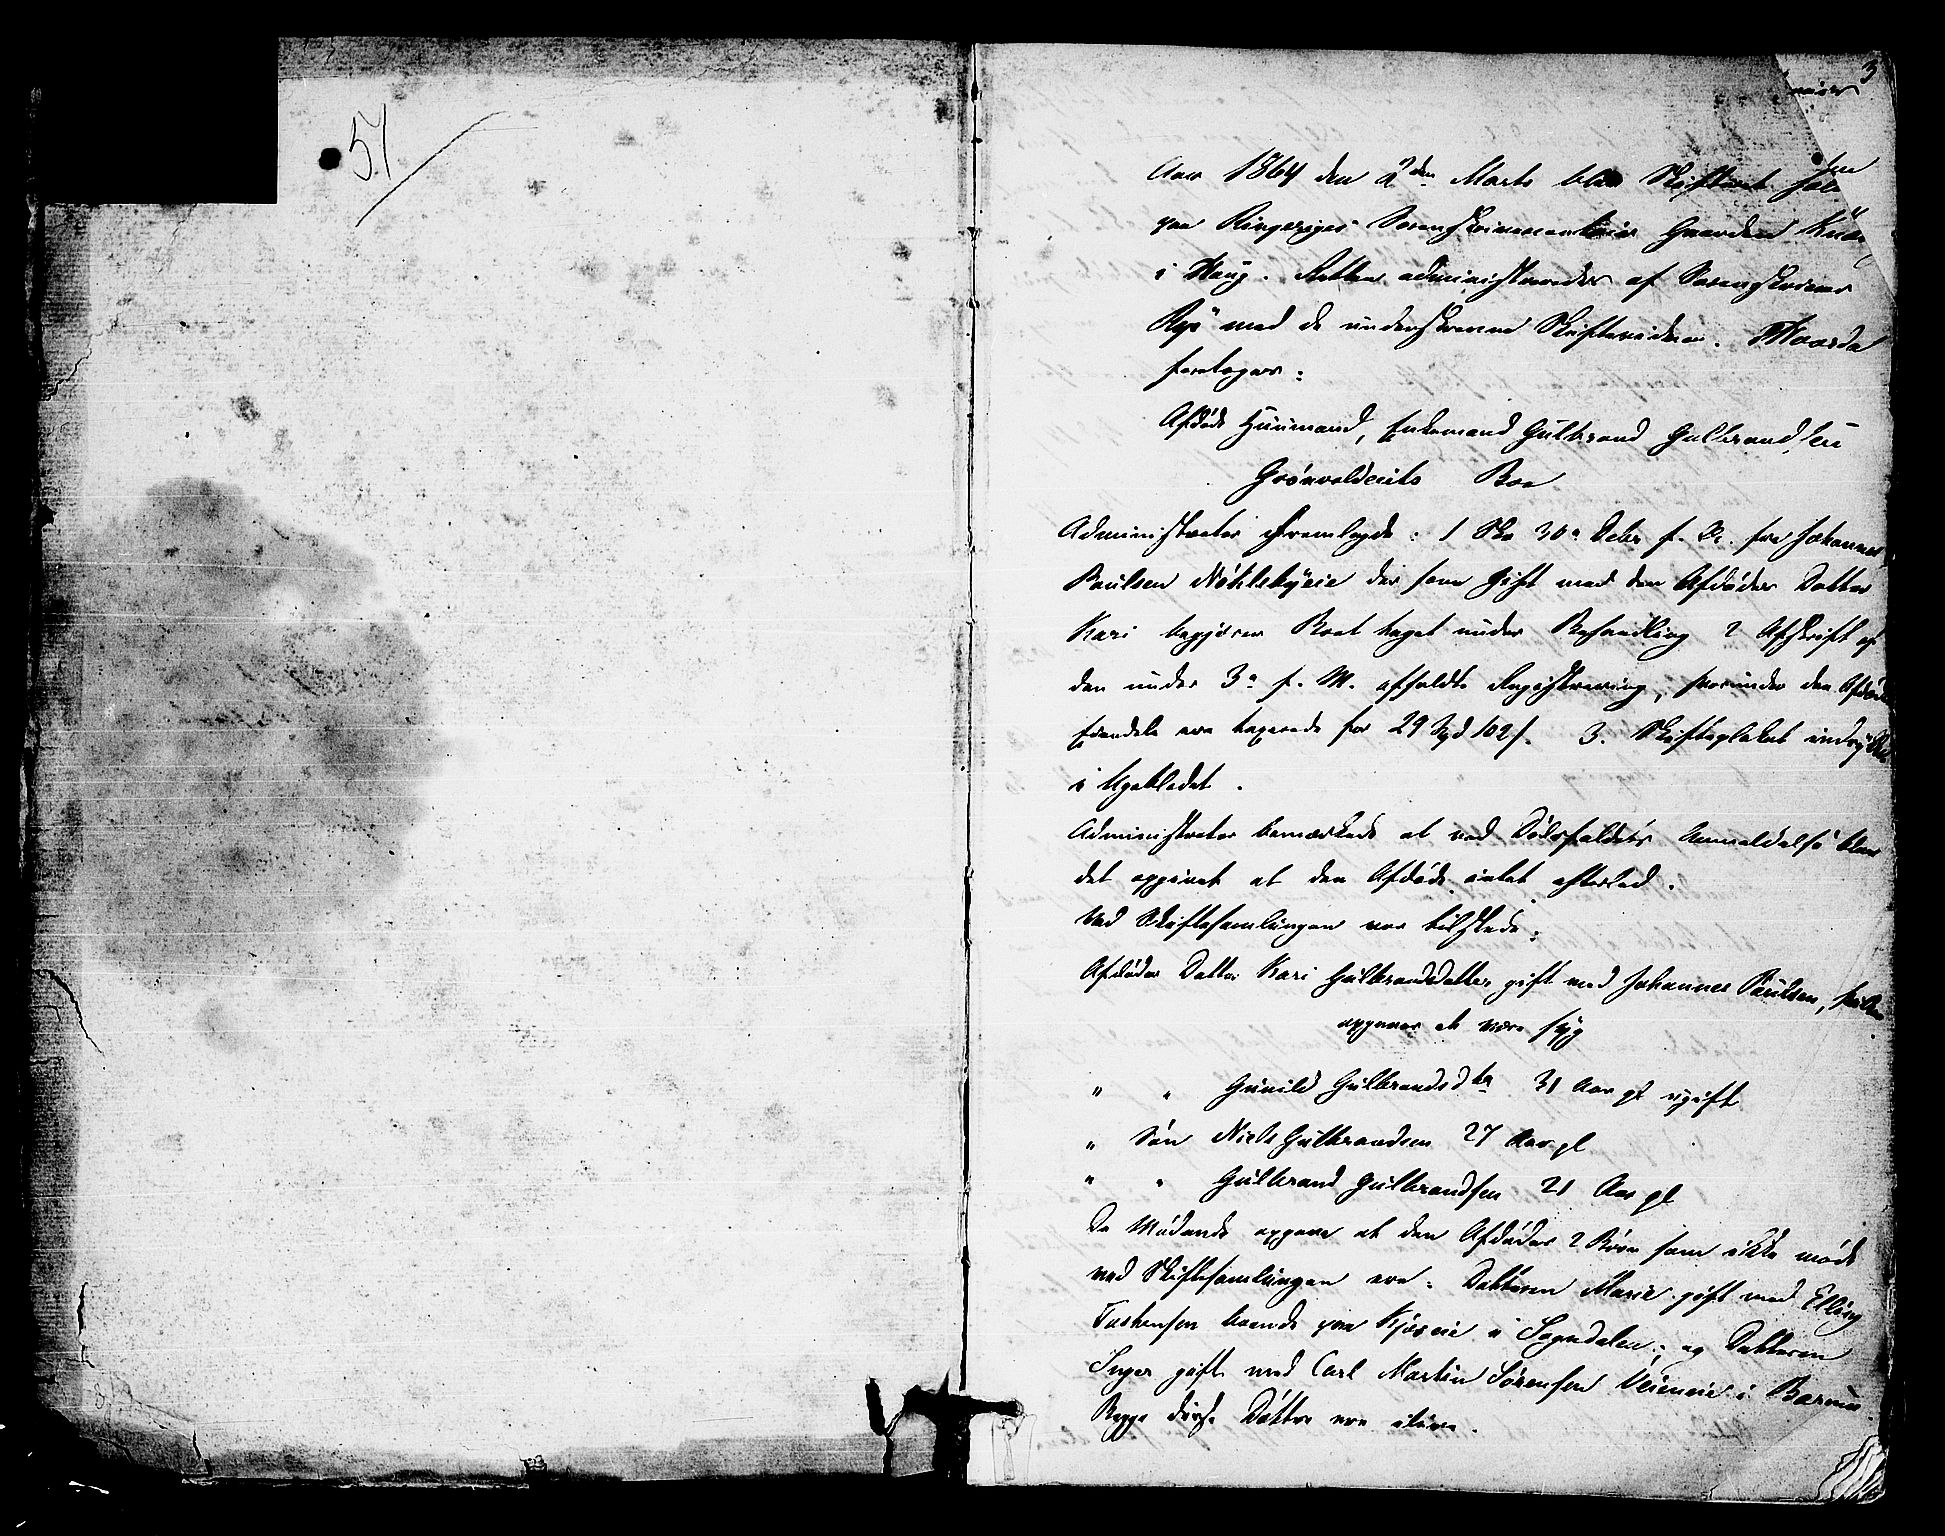 54
3
Aar 1864 den 2den Marts blev Skifteret
paa Ringeriges Sorenskrivercontoir Gaarden
i Haug. Retten administreredes af Sorenskriver
Rye med de underskrevne Skiftevidner. Hvorda
foretoges:
Afdøde Huusmand, Enkemand Gulbrand Gulbrandsen
Grønvoldeiets Boe
Administrator fremlagde: 1 Skr 30te Decbr f. A. fra Johannes
Paulsen der som gift med den Afdødes Datter
Kari begjærer Boet taget under Behandling 2 Afskrift af
den under 3die f. M. afholdte Registrering, hvorunder den Afdødes
Eiendele ere taxerede for 29 Spd 102 s. 3. Skifteplakat indrykket
i Ugebladet.
Administrator bemærkede at ved Dødsfaldets Anmeldelse blev
det opgivet at den Afdøde intet efterlod.
Ved Skiftesamlingen var tilstede:
Afdødes Datter Kari Gulbrandsdatter gift med Johannes Paulsen, hvilken
opgaves at være syg
" " Gunild Gulbrandsdtr 31 Aar gl ugift
" Søn Niels Gulbrandsen 27 Aar gl
" " Gulbrand Gulbrandsen 21 Aar gl
De Mødende opgave at den Afdødes 2 Børn som ikke møde
ved Skiftesamlingen ere: Datteren Marie gift med Elling
Torstensen boende paa i Sogndalen; og Datteren
Inger gift med Carl Martin Sørensen Veieneie i Bærum.
Begge disse Døttre ere ilive.